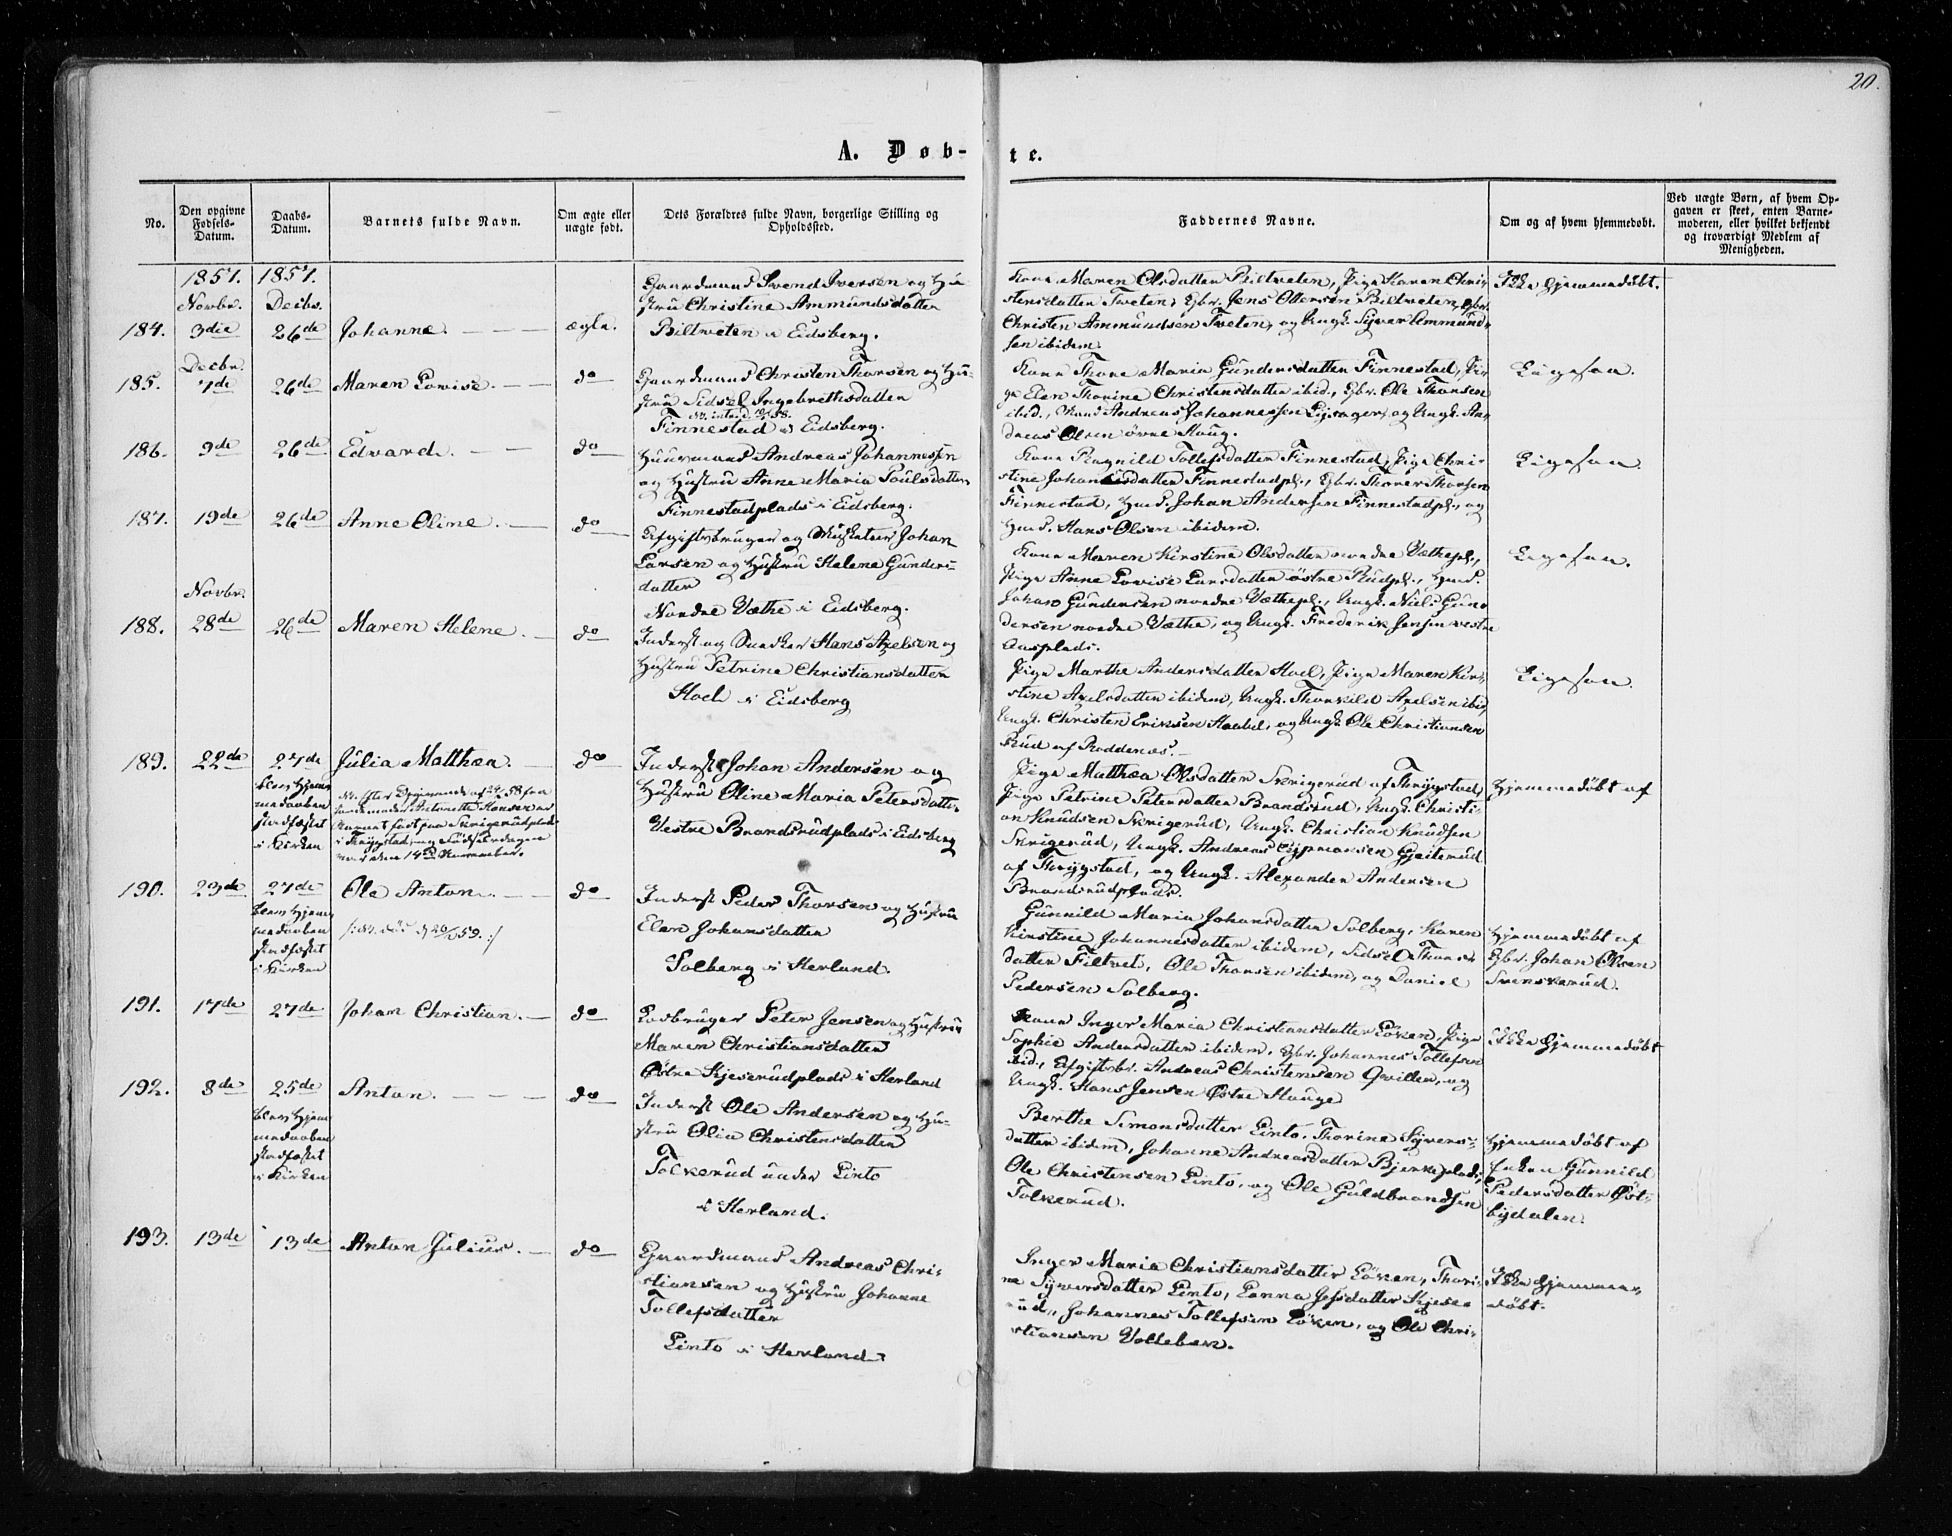 20.
A. Døb-
te.
No.
Den opgivne
Fødsels-
Datum.
Daabs-
Datum.
Barnets fulde Navn.
Om ægte eller
uægte født.
Dets Forældres fulde Navn, borgerlige Stilling og
Opholdssted.
Faddernes Navne.
Om og af hvem hjemmedøbt.
Ved uægte Børn, af hvem Op-
gaven er skeet, enten Barne-
moderen, eller hvilket bekjendt
og troværdigt Medlem af
Menigheden.
1857. 1857.
Novbr. Decbr.
184. 3die 26de Johanne. ægte.
Gaardmand Svend Iversen og Hu-
stru Christine Ammundsdatter
Biltveten i Eidsberg.
Kone Maren Olsdatter Biltveten, Pige Karen Chri-
stensdatter Tveten, Gbr. Jens Ottersen Biltveten, Gbr.
Christen Ammundsen Tveten, og Ungk. Syver Ammund-
sen ibidem.
Ikke hjemmedøbt.
Decbr.
185. 7de 26de Maren Lovise. do
Gaardmand Christen Thorsen og Hu-
stru Sidsel Ingebrethsdatter
Finnestad i Eidsberg.
Kone Thore Maria Gundersdatter Finnestad, Pi-
ge Elen Thorine Christensdatter ibid., Gbr. Ole Thorsen
ibid., Mand Andreas Johannessen, og Ungk. An-
dreas Olsen øvre Haug.
Ligesaa.
186. 9de 26de Edvard. do
Huusmand Andreas Johannesen
og Hustru Anne Maria Poulsdatter
Finnestadplads i Eidsberg.
Kone Ragnild Tollefsdatter Finnestad, Pige Chri-
stine Johannesdatter Finnestadpl., Gbr. Thorer Thorsen
Finnestad, Hmd. Johan Andersen Finnestadpl., og
Hmd. Hans Olsen ibidem.
Ligesaa.
187. 19de 26de Anne Oline. do
Afgiftsbruger og Musketeer Johan
Larsen og Hustru Helene Gunders-
datter
Nordre Væthe i Eidsberg.
Kone Maren Kirstine Olsdatter nordre Væthepl.,
Pige Anne Lovise Larsdatter østre Rudpl., Hmd.
Johan Gundersen nordre Væthepl., Ungk. Niels Gun-
dersen nordre Væthe, og Ungk. Frederik Jensen vestre
Aasplads.
Ligesaa.
Novbr.
188. 28de 26de Maren Helene. do
Inderst og Snedker Hans Axelsen og
Hustru Petrine Christiansdatter
Hoel i Eidsberg
Pige Marthe Andersdatter Hoel, Pige Maren Kir-
stine Axelsdatter ibidem, Ungk. Thorkild Axelsen ibid,
Ungk. Christen Eriksen Haabel, og Ungk. Ole Christiansen
Rud af Roddenæs.
Ligesaa.
189. 22de 27de Julia Matthea. do
blev Hjem
medaaben
stadfæstet
i Kirken
Barnet født paa Skrigerudplads
i Thrygstad, og Fødselsdagen
den 14de November.
Inderst Johan Andersen og
Hustru Oline Maria Petersdatter
Vestre Brandsrudplads i Eidsberg
Pige Matthea Olsdatter Skrigerud af Thrygstad,
Pige Petrine Petersdatter Brandsrud, Ungk. Christi-
an Knudsen Skrigerud, Ungk. Christian Knudsen
Skrigerud, Ungk. Andreas Cyprensen Gjeiterud
af Thrygstad, og Ungk. Alexander Andersen
Brandsrudplads.
Hjemmedøbt af
190. 23de 27de Ole Anton. do
blev Hjem
medaaben
stadfæstet
i Kirken
Inderst Peder Thorsen og Hustru
Elen Johansdatter
Solberg i Herland.
Gunnild Maria Johansdatter Solberg, Karen
Kirstine Johannesdatter ibidem, Sidsel Thors-
datter Filtvet, Ole Thorsen ibidem, og Daniel
Pedersen Solberg.
Hjemmedøbt af
Gbr. Johan Olsen
Svenskerud.
191. 17de 27de Johan Christian. do
Lodbruger Peter Jensen og Hustru
Maren Christiansdatter
Østre Kjeserudplads i Herland
Kone Inger Maria Christiansdatter Løken, Pige
Sophie Andersdatter ibidem, Gbr. Johannes Tollefsen
ibid., Afgiftsbr. Andreas Christensen Qvillen, og
Ungk. Hans Jensen Østre Hauge
Ikke hjemmedøbt
192. 8de 25de Anton. do
blev Hjem
medaaben
stadfæstet
i Kirken
Inderst Ole Andersen og Hu-
stru Olia Christensdatter
Tolkerud under Linto
i Herland.
Berthe Simonsdatter Linto, Thorine Syvers-
datter ibidem, Johanne Andreasdatter Bjerkeplads,
Ole Christensen Linto, og Ole Guldbrandsen
Tolkerud.
Hjemmedøbt af
Enken Gunnild
Pedersdatter Øst-
bydalen.
193. 13de 13de Anton Julius. do
Gaardmand Andreas Chri-
stiansen og Hustru Johanne
Tollefsdatter
Linto i Herland
Inger Maria Christiansdatter Løken, Thori-
ne Syversdatter Linto, Lenna Jensdatter Kjese-
rud, Johannes Tollefsen Løken, og Ole Chri-
stiansen Volleben.
Ikke hjemme-
døbt.